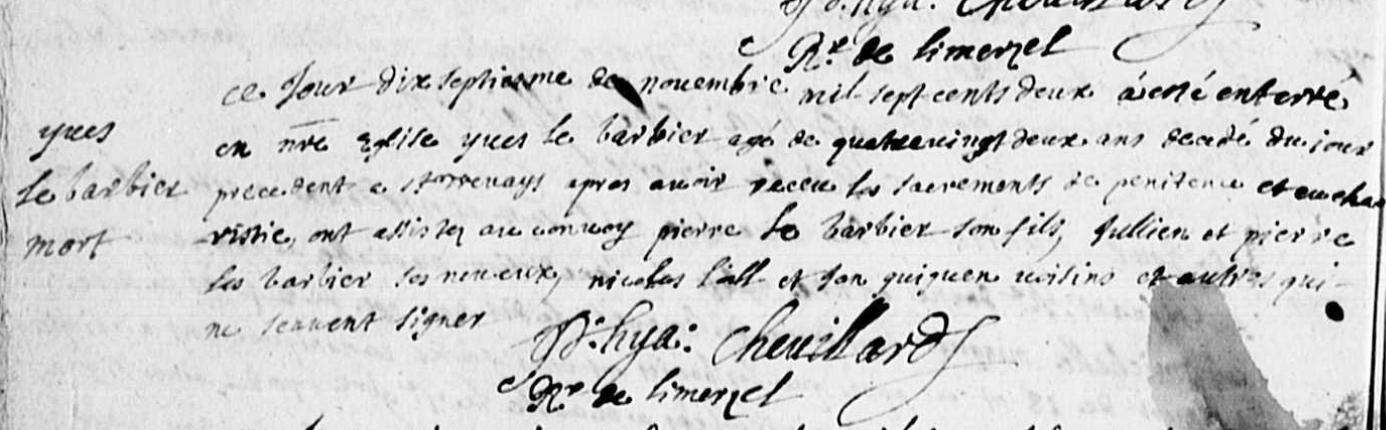 Rr de limerzel
ce Jour dix septiesme de novembre mil sept cents deux a esté enterré
en nre Eglise yves le barbier agé de quatrevingt deux ans decedé du jour
precedent a apres avoir receu les sacrements de penitence et eucha
ristie, ont assistez au convoy pierre le barbier son fils, Jullien et pierre
les barbier ses neveux, nicolas et Jan guiguen voisins et autres qui
ne scavent signer
yves
le barbier
mort
hya: Chevillard
Rr de limerzel